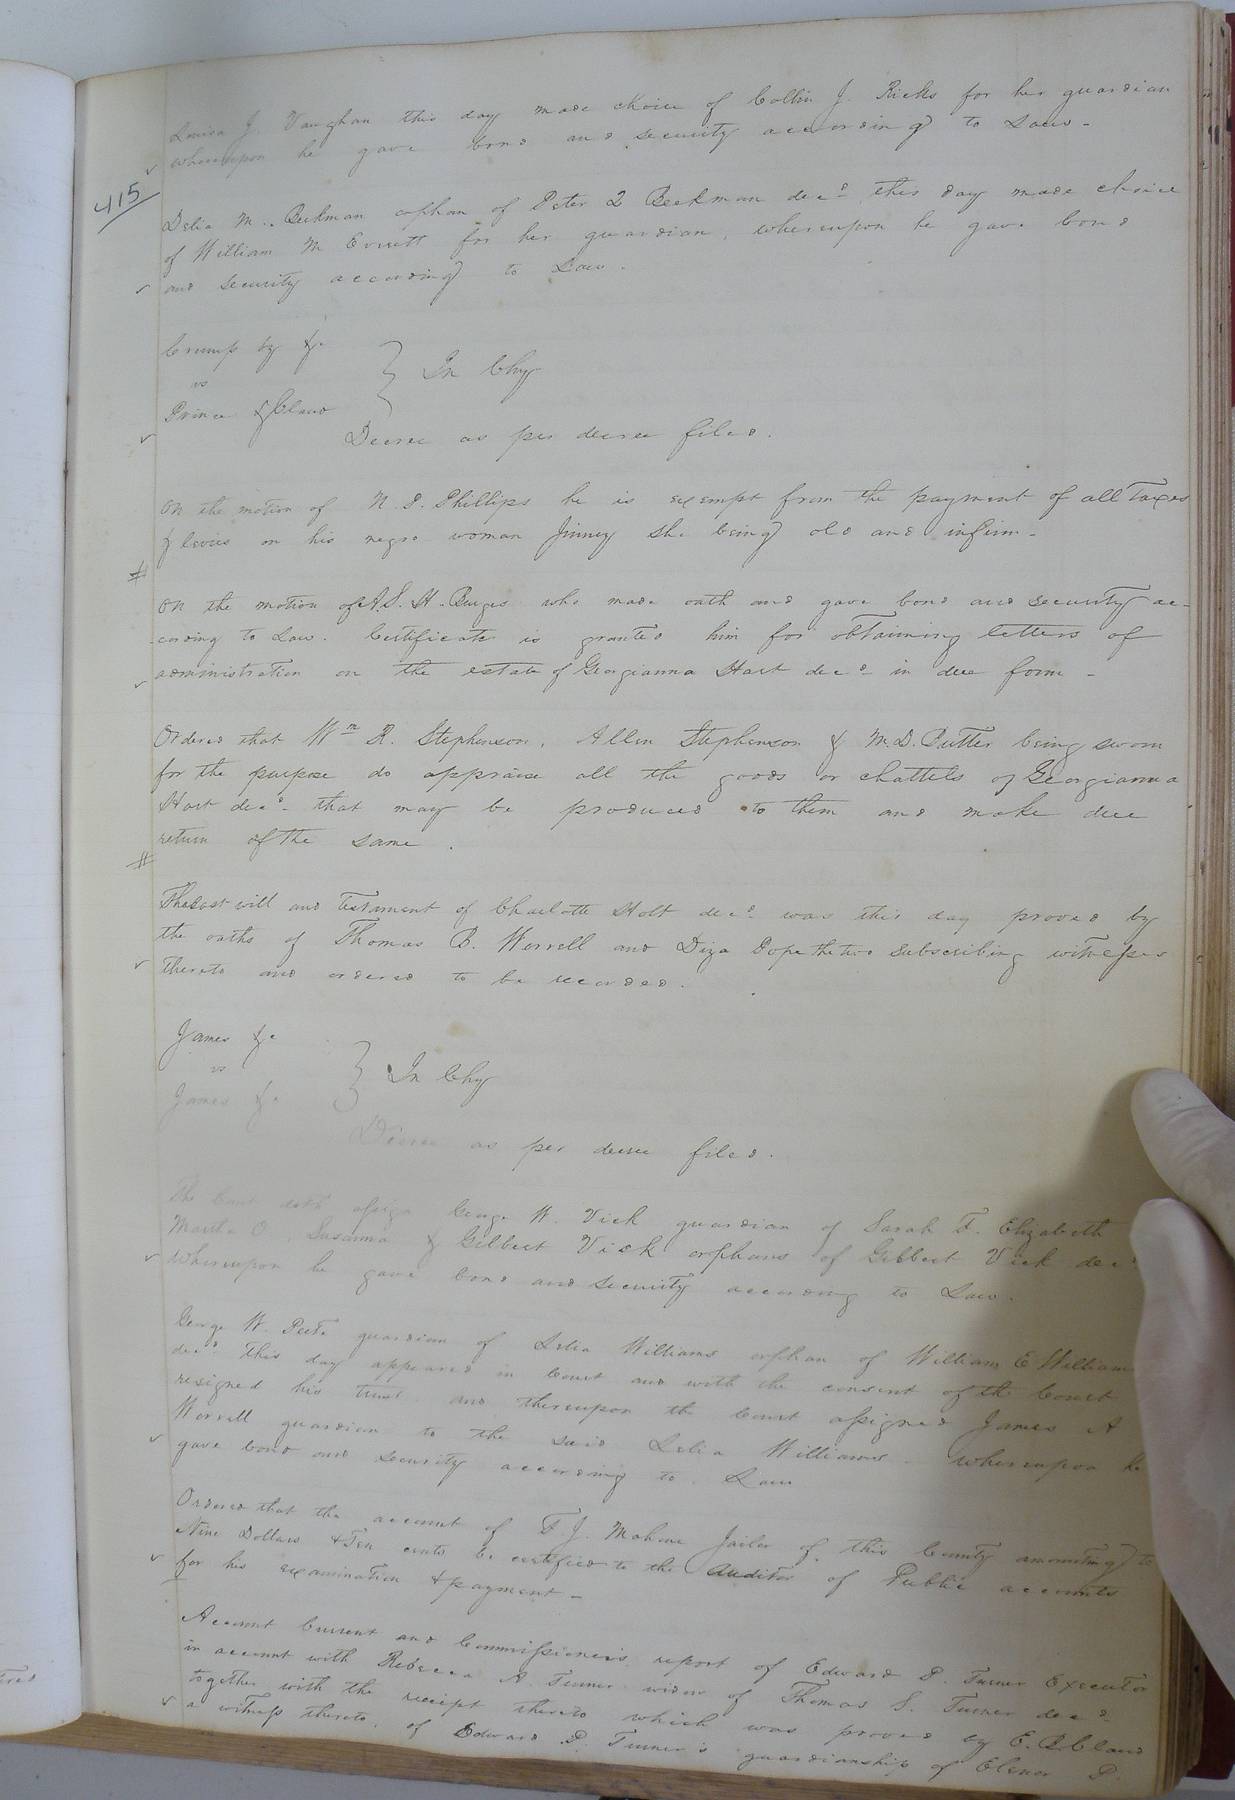 Louisa J. Vaughan this day made choice of Collin J. Ricks for her guardian
whereupon he gave bond and security according to Law.
415
Delia M. Beekman orphan of Peter Beekman decd this day made choice
of William M Everett for her guardian, whereupon he gave bond
and security according to Law.
Crump by &c
vs
Prince & Claud
In Chy
Decree as per decree filed.
On the motion of N. S. Phillips he is exempt from the payment of all Taxes
& levies on his negro woman Jinney she being old and infirm.
#
On the motion of A. S. H. Burges who made oath and gave bond and security ac-
-cording to Law. Certificate is granted him for obtaining letters of
administration on the estate of Georgianna Hart decd in due form -
Ordered that Wm R. Stephenson, Allen Stephenson & M. D. being sworn
for the purpose do appraise all the goods or chattels of Georgianna
Hart decd that may be produced to them and make due
return of the same.
#
The Last will and Testament of Charlotte Holt decd was this day proved by
the oaths of Thomas B. Worrell and Diza Pope the two subscribing witnesses
thereto and ordered to be recorded.
James &c
vs
James &c
In Chy
Decree as per decree filed.
The Court doth assign George W. Vick guardian of Sarah F. Elizabeth
Martha O. Susanna & Gilbert Vick orphans of Gilbert Vick decd
whereupon he gave bond and security according to Law.
George W. Peete guardian of Lelia Williams orphan of William E William
decd this day appeared in Court and with the consent of the Court
resigned his trust and thereupon the Court assigned James A
Worrell guardian to the said Lelia Williams - whereupon he
gave bond and security according to Law
Ordered that the account of F. J. Mahone Jailor of this County amounting to
Nine Dollars & Ten cents be certified to the Auditor of Public accounts
for his examination & payment -
Account Current and Commissioners report of Edward P. Turner Executor
in account with Rebecca A. Turner widow of Thomas S. Turner decd
together with the receipt thereto which was proved by E. Claud
a witness thereto. of Edward P. Turner's guardianship of Elenor P.